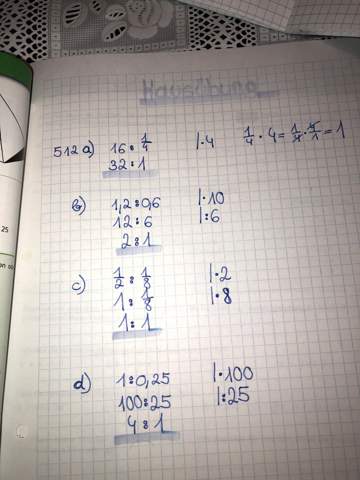 Hausübung
512 a) 16 : 1/4 |·4 1/4 · 4 = 1/4 · 4/1 = 1
32 : 1
b) 1,2 : 0,6 |·10
12 : 6 |:6
2 : 1
c) 1/2 : 1/8 |·2
1 : 1/8 |·8
1 : 1
d) 1 : 0,25 |·100
100 : 25 |:25
4 : 1
25